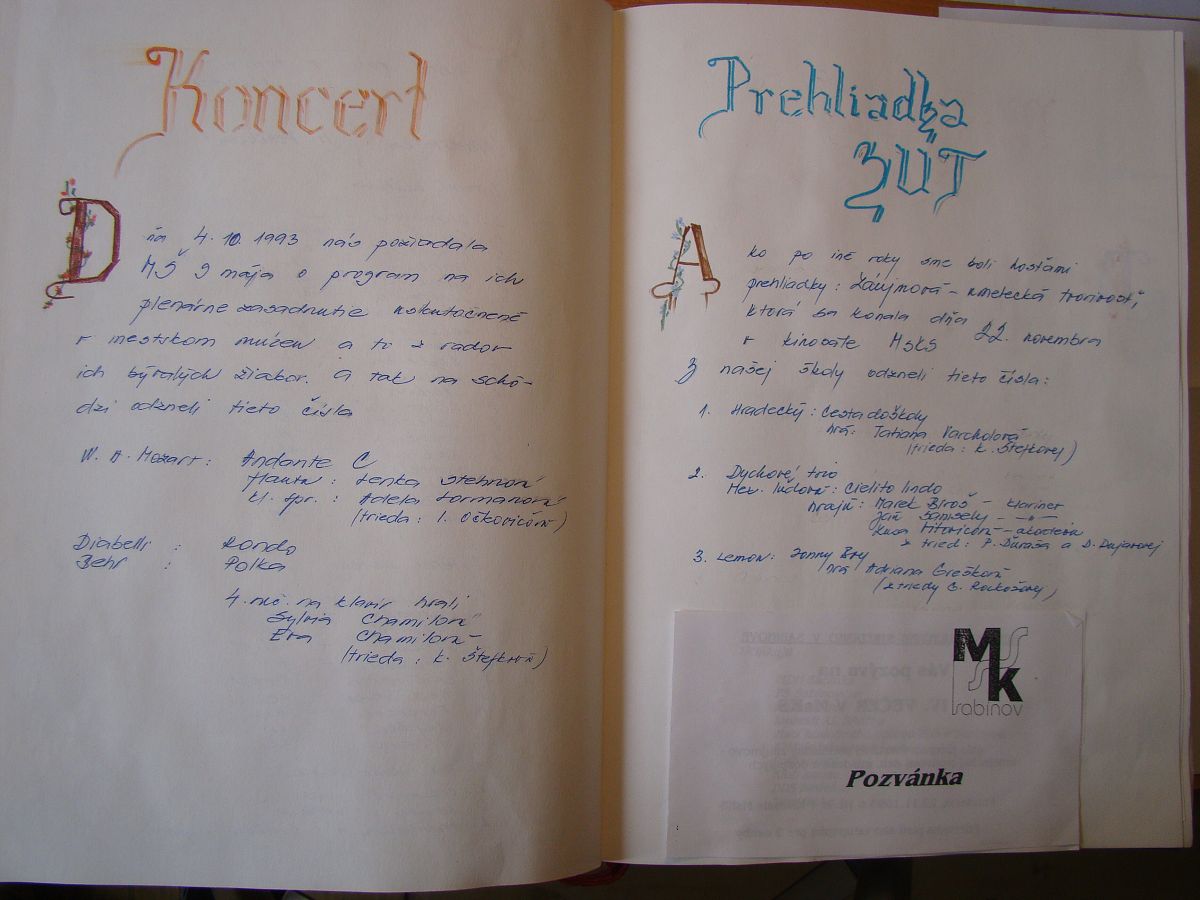 Koncert
Dňa 4. 10. 1993 nás požiadala
MŠ 9 mája o program na ich
plenárne zasadnutie uskutočnené
v mestskom múzeu a to z radov
ich bývalých žiakov. A tak na schô-
dzi odzneli tieto čísla
W. A. Mozart: Andante C
flauta: Lenka
kl. spr.: Adela
(trieda: I. Očkovičová)
Diabelli: Rondo
Behr: Polka
4. ruč. na klavír hrali
Sylvia Chamilová
Eva Chamilová
(trieda: K. Štejková)
Prehliadka
ZÚT
Ako po iné roky sme boli hosťami
prehliadky: Záujmová-umelecká tvorivosť,
ktorá sa konala dňa 22. novembra
v kinosále MsKS
Z našej školy odzneli tieto čísla:
1. Hradecký: Cesta do školy
hrá: Tatiana Varcholová
(trieda: K. Štejkovej)
2. Dychové trio
Mex. ľudová: Cielito lindo
hrajú: Marek Biroš - klarinet
Ján - " -
- akordeón
z tried: P. Ďuraša a D.
3. Lemon: Jonny Boy
hrá Adriana Grešková
(z triedy
MsK
sabinov
Pozvánka